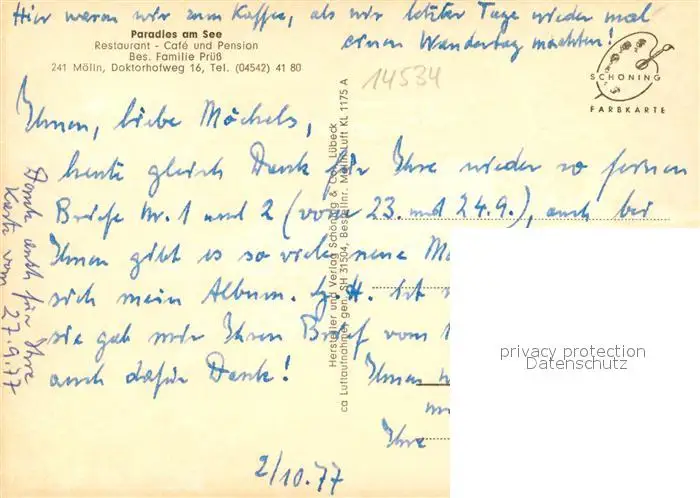 Hier waren wir zum Kaffee, als wir letzter Tage wieder mal
einen Wandertag machten!
Paradies am See
Restaurant - Café und Pension
Bes. Familie Prüß
241 Mölln, Doktorhofweg 16, Tel. (04542) 41 80
14534
SCHÖNING
FARBKARTE
Ihnen, liebe Möckels,
heute gleich Dank für Ihre wieder so feinen
Briefe Nr. 1 und 2 (vom 23. und 24.9.), auch bei
Ihnen gibt es so viele neue
sich mein Album.
sie gab mir Ihren Brief vom 1
auch dafür Dank!
Ihnen
Ihre
2/10.77
Dank auch für Ihre
Karte vom
27.9.77
Hersteller und Verlag Schöning & Co., Lübeck
ca Luftaufnahme, gen. SH 31504, Bestellnr. Mölln Luft KL 1175 A
privacy protection
Datenschutz